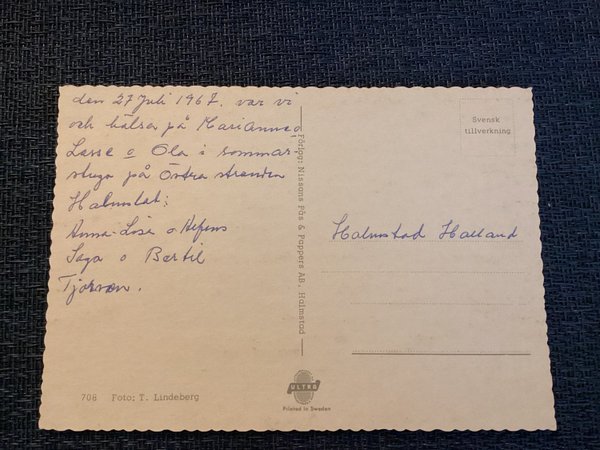 den 27 Juli 1967. var vi
och hälsa på Marianne,
Lasse o Ola i sommar-
stuga på Östra stranden
Halmstat:
Anna-Lisa o Alfons
Saga o Bertil
Tjorven.
Förlag: Nissans Pås & Pappers AB, Halmstad
Svensk
tillverkning
Halmstad Halland
708 Foto: T. Lindeberg
ULTRA
Printed in Sweden